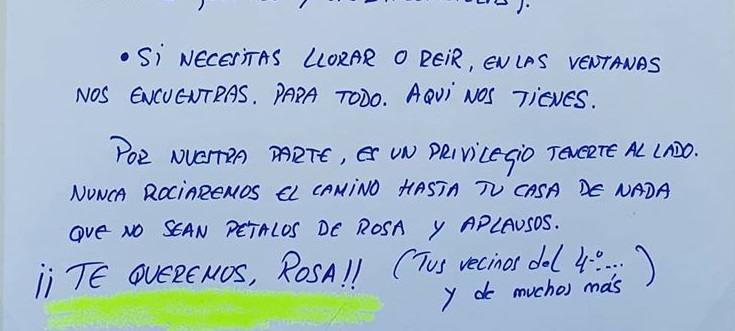 • Si NECESITAS LLORAR O REIR, EN LAS VENTANAS
NOS ENCUENTRAS. PARA TODO. AQUI NOS TIENES.
POR NUESTRA PARTE, ES UN PRIVILEGIO TENERTE AL LADO.
NUNCA ROCIAREMOS EL CAMINO HASTA TU CASA DE NADA
QUE NO SEAN PETALOS DE ROSA Y APLAUSOS.
¡¡ TE QUEREMOS, ROSA!! (Tus vecinos del 4º...
y de muchos más)